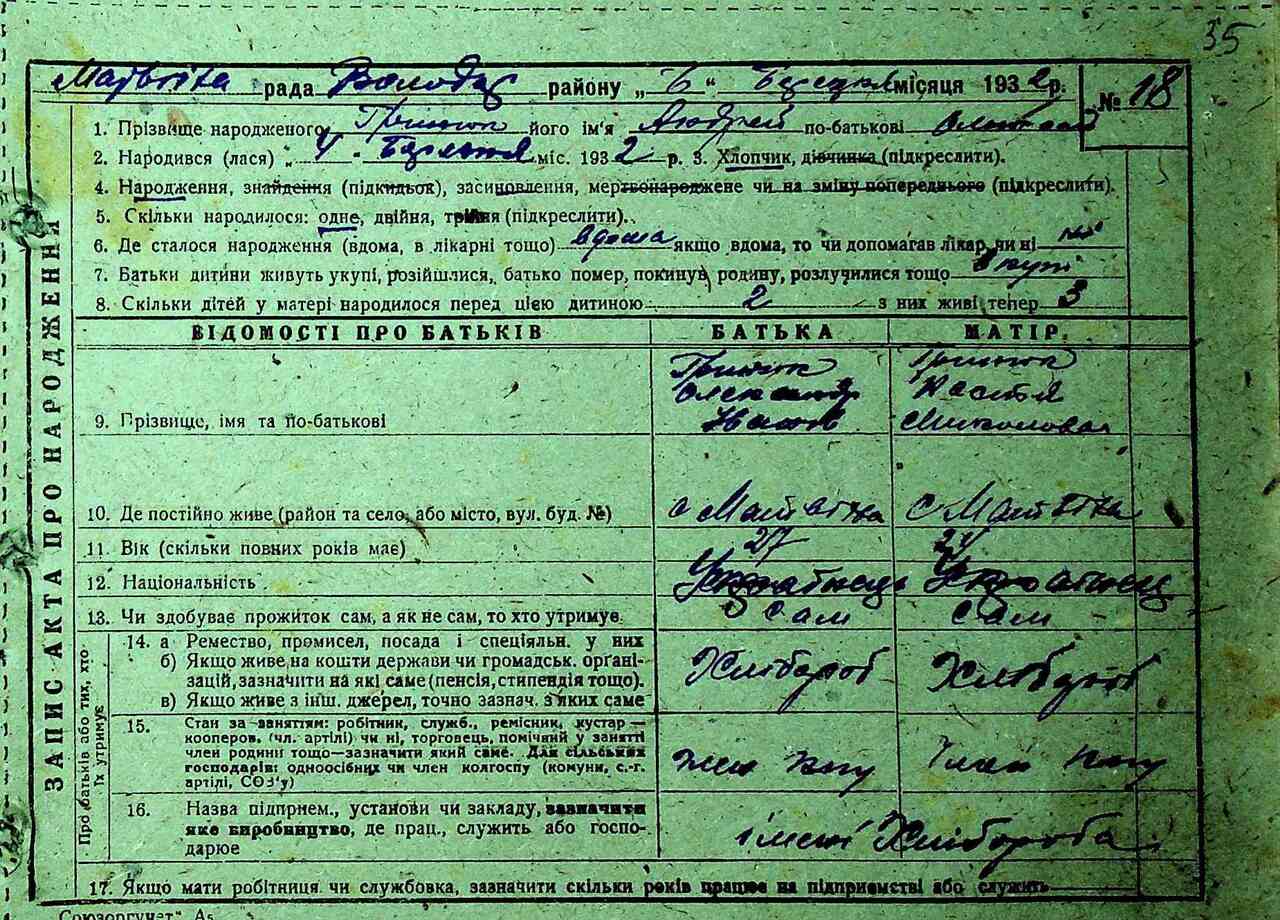 35
рада Володар району „6“ Березня місяця 1932 р. № 18
1. Прізвище народженого його ім'я Андрей по-батькові
2. Народився (лася) „4“ Березня міс. 1932 р. 3. Хлопчик, дівчинка (підкреслити).
4. Народження, знайдення (підкидьок), засиновлення, мертвонароджене чи на зміну попереднього (підкреслити).
5. Скільки народилося: одне, двійня, трійня (підкреслити).
6. Де сталося народження (вдома, в лікарні тощо) вдома якщо вдома, то чи допомагав лікар, чи ні ні
7. Батьки дитини живуть укупі, розійшлися, батько помер, покинув родину, розлучилися тощо вкупі
8. Скільки дітей у матері народилося перед цією дитиною 2 з них живі тепер 3
ЗАПИС АКТА ПРО НАРОДЖЕННЯ
ВІДОМОСТІ ПРО БАТЬКІВ БАТЬКА МАТІР
Олександр Настя
9. Прізвище, імя та по-батькові Іванов Миколовая
10. Де постійно живе (район та село, або місто, вул. буд. №) с с
11. Вік (скільки повних років має) 27
12. Національність Українець Українец
13. Чи здобуває прожиток сам, а як не сам, то хто утримує Сам Сам
Про батьків або тих, хто їх утримує
14. а Ремество, промисел, посада і спеціяльн. у них
б) Якщо живе на кошти держави чи громадськ. орґані-
зацій, зазначити на які саме (пенсія, стипендія тощо). Хлібороб Хлібороб
в) Якщо живе з інш. джерел, точно зазнач. з яких саме
15. Стан за заняттям: робітник, служб., ремісник, кустар —
кооперов. (чл. артілі) чи ні, торговець, помічний у занятті
член родини тощо—зазначити який саме. Для сільських
господарів: одноосібник чи член колгоспу (комуни, с.-г. член член
артілі, СОЗ'у)
16. Назва підприєм., установи чи закладу, зазначити
яке виробництво, де прац., служить або госпо-
дарює імені Хлібороба
17. Якщо мати робітниця чи службовка, зазначити скільки років працює на підприємстві або служить
„Союзоргучет" А5